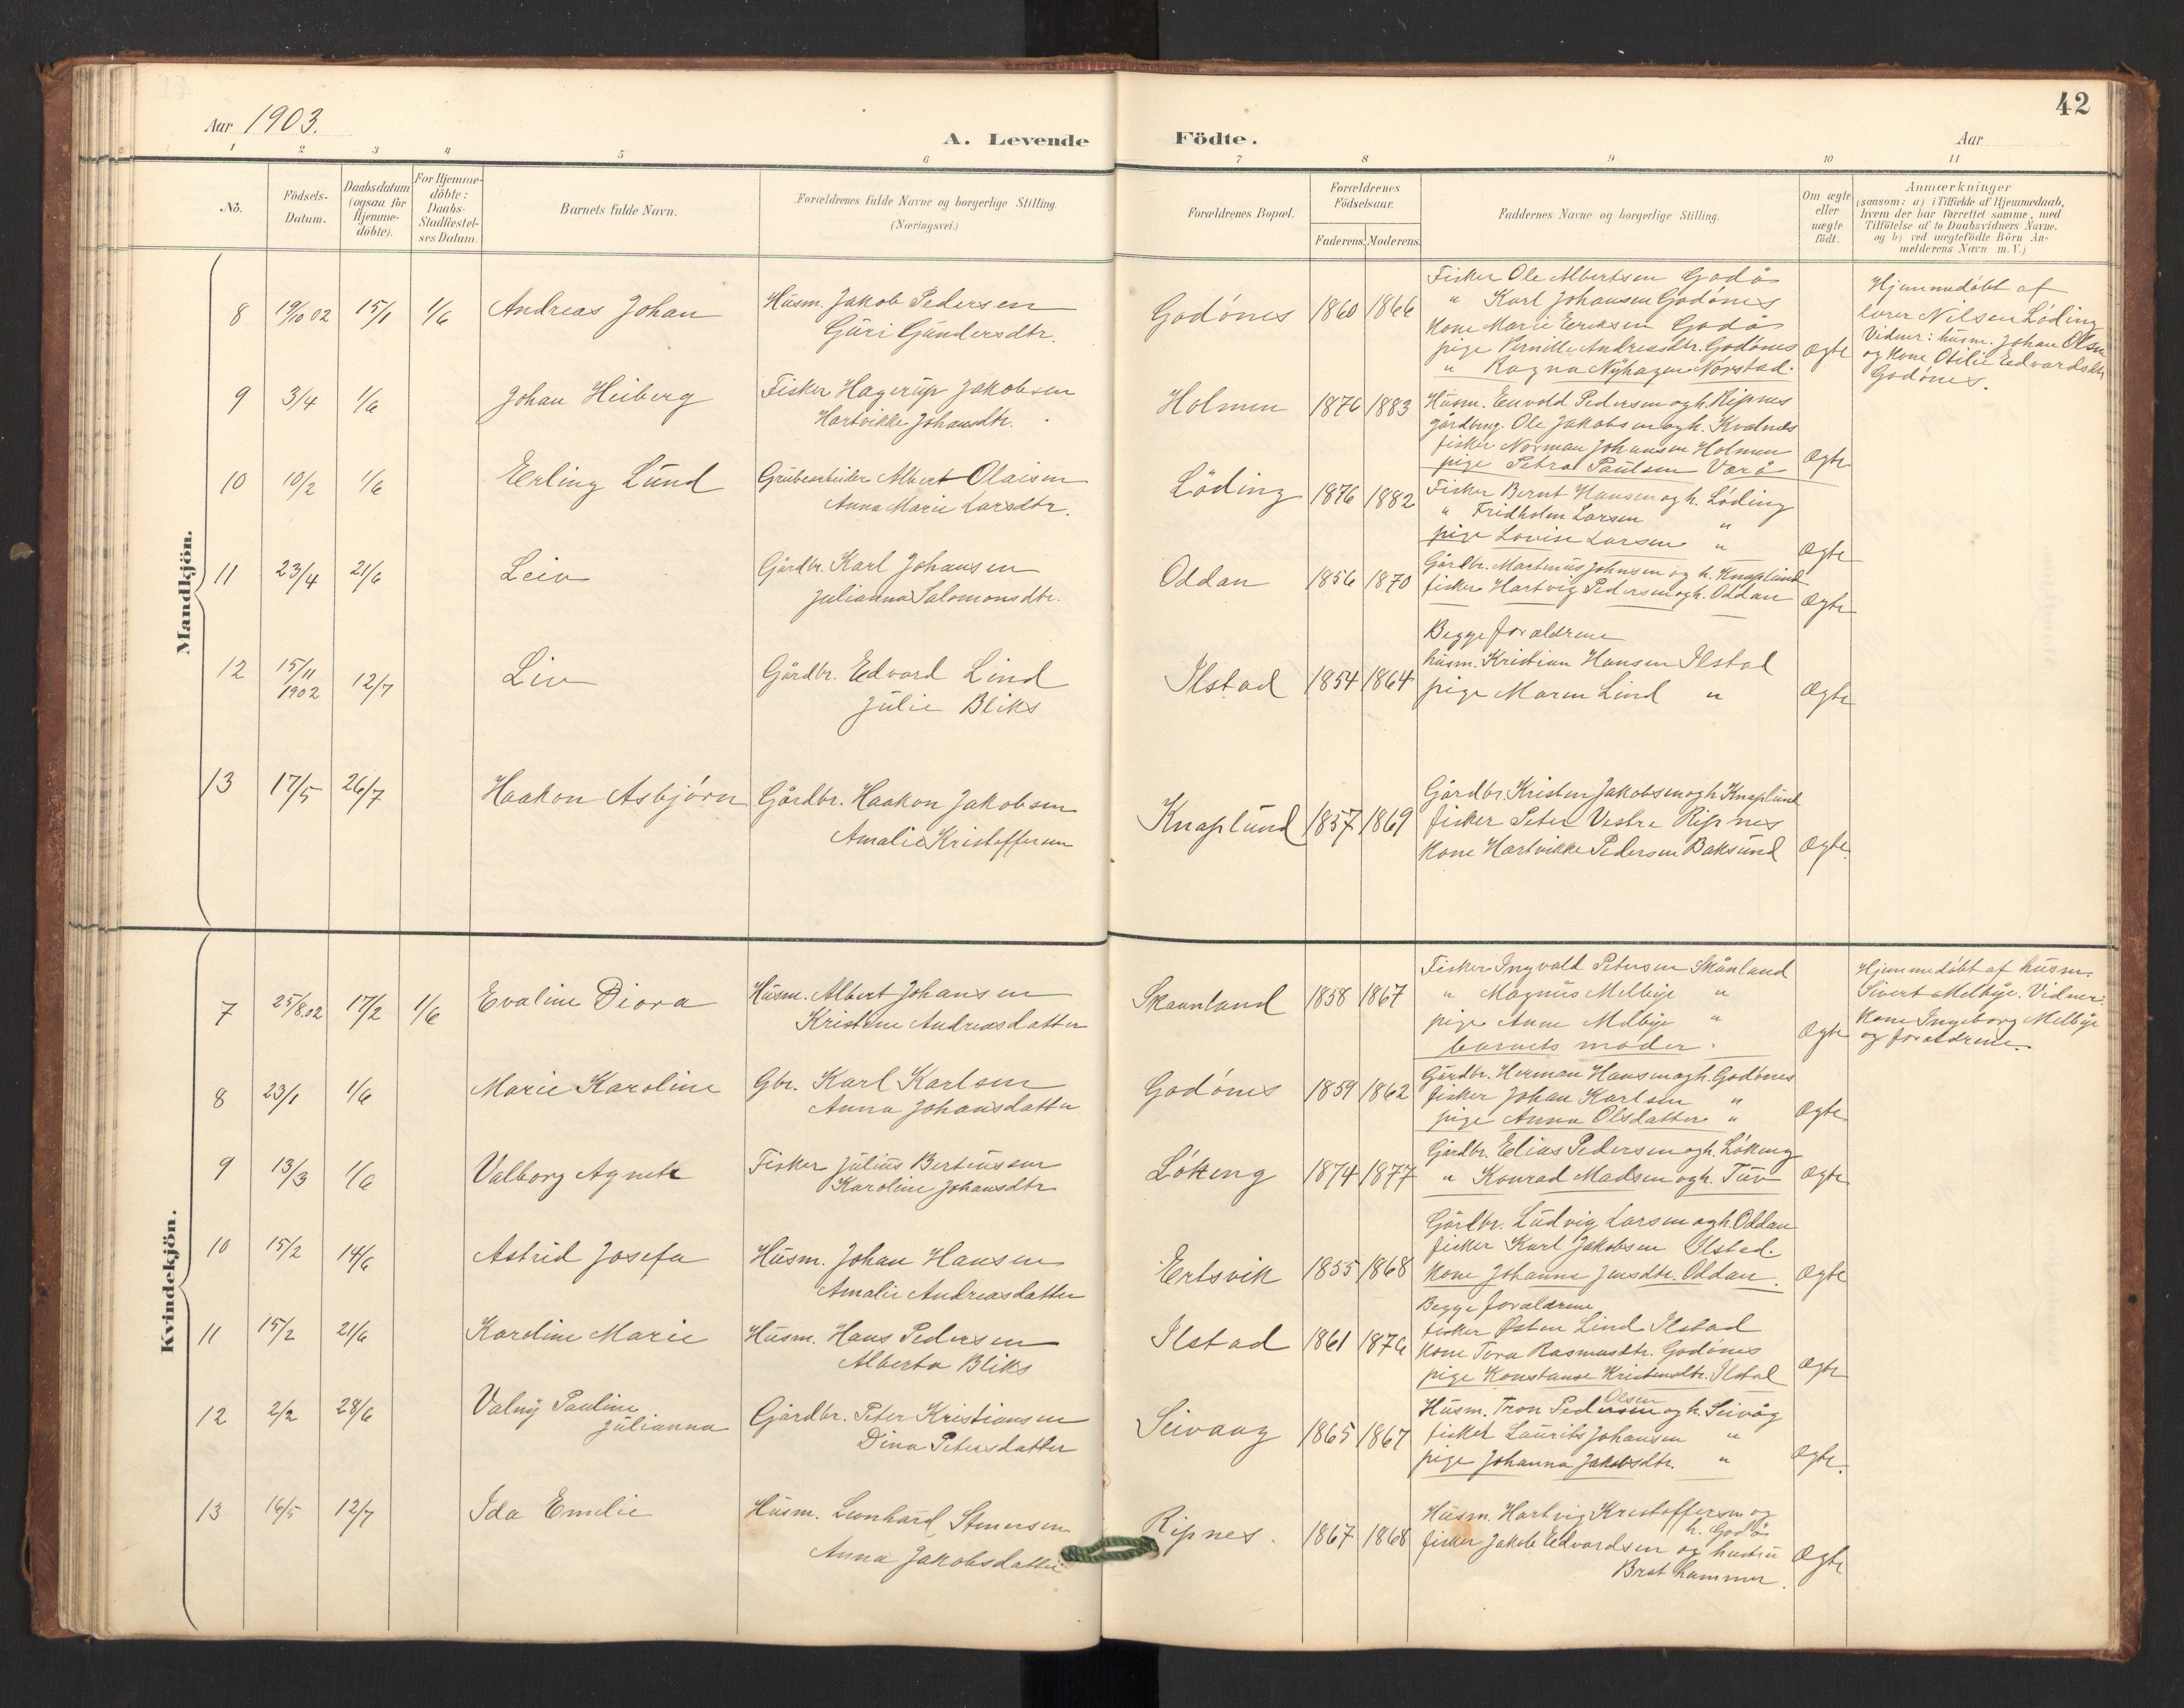 42
Aar 1903.
A. Levende Födte.
Aar
1 2 3 4 5 6 7 8 9 10 11
No.
Födsels-Datum.
Daabsdatum (ogsaa for Hjemme-döbte).
For Hjemme-döbte: Daabs-Stadfæstel-ses Datum.
Barnets fulde Navn.
Forældrenes fulde Navne og borgerlige Stilling.
(Næringsvei.)
Forældrenes Bopæl.
Forældrenes Födselsaar.
Faderens. Moderens.
Faddernes Navne og borgerlige Stilling.
Om ægte eller uægte födt.
Anmærkninger
(saasom: a) i Tilfælde af Hjemmedaab,
hvem der har forrettet samme, med
Tilföielse af to Daabsvidners Navne.
og b) ved uægtefödte Börn An-
melderens Navn m. V.)
Mandkjön.
8 19/10 02 15/1 1/6 Andreas Johan
Husm. Jakob Pedersen
Guri Gundersdtr.
Godönes 1860 1866
Fisker Ole Albertsen Godö
" Karl Johansen Godönes
Kone Marie Eriksen Godö
pige Pernille Andreasdtr. Godönes
" Ragna Nyhagen Norstad.
Ægte
Hjemmedöbt af
lærer Nilsen Löding
Vidner: husm. Johan Olsen
og kone Otilie Edvardsdtr
Godönes.
9 3/4 1/6 Johan Heiberg
Fisker Hagerup Jakobsen
Hartvikke Johansdtr.
Holmen 1876 1883
Husm. Envold Pedersen og h. Ripnes
gårdbrug. Ole Jakobsen og h. Kvalnes
fisker Norman Johansen Holmen
pige Petra Paulsen Værö
Ægte
10 10/2 1/6 Erling Lund
Grubearbeider Albert Olaisen
Anna Marie Larsdtr.
Löding 1876 1882
Fisker Bernt Hansen og h. Löding
" Fridholm Larsen "
pige Lovise Larsen "
Ægte
11 23/4 21/6 Leiv
Gårdbr. Karl Johansen
Julianna Salomonsdtr.
Oddan 1856 1870
Gårdbr. Martinus Johnsen og h. Knaplund
fisker Hartvig Pedersen og h. Oddan
Ægte
12 15/11 1902 12/7 Liv
Gårdbr. Edvard Lind
Julie Bliks
Ilstad 1854 1864
Begge forældrene
husm. Kristian Hansen Ilstad
pige Maren Lind "
Ægte
13 17/5 26/7 Haakon Asbjörn
Gårdbr. Haakon Jakobsen
Amalie Kristoffersen
Knaplund 1857 1869
Gårdbr. Kristen Jakobsen og h. Knaplund
fisker Peter Vestre Ripnes
Kone Hartvikke Pedersen Baksund
Ægte.
Kvindekjön.
7 25/8.02 17/2 1/6 Evaline Diora
Husm. Albert Johansen
Kristine Andreasdatter
Skaanland 1858 1867
Fisker Ingvald Petersen Skånland
" Magnus Melbye "
pige Anne Melbye "
barnets moder.
Ægte
Hjemmedöbt af husm.
Sivert Melbye. Vidner:
Kone Ingeborg Melbye
og forældrene.
8 23/1 1/6 Marie Karoline
Gbr. Karl Karlsen
Anna Johansdatter
Godönes 1859 1862
Gårdbr. Herman Hansen og h. Godönes
fisker Johan Karlsen "
pige Anna Olsdatter "
Ægte
9 13/3 1/6 Valborg Agnete
Fisker Julius Berteussen
Karoline Johansdtr
Lökeng 1874 1877
Gårdbr. Elias Pedersen og h. Lökeng
" Konrad Madsen og h. Tuv
Ægte
10 15/2 14/6 Astrid Josefa
Husm. Johan Hansen
Amalie Andreasdatter
Ertsvik 1855 1868
Gårdbr. Ludvig Larsen og h. Oddan
fisker Karl Jakobsen Ilstad.
Kone Johanne Jensdtr. Oddan.
Ægte
11 15/2 21/6 Karoline Marie
Husm. Hans Pedersen
Alberta Bliks
Ilstad 1861 1876
Begge forældrene
fisker Østen Lind Ilstad
Kone Tora Rasmusdtr. Godönes
pige Konstanse Kristensdtr. Ilstad
Ægte
12 2/2 28/6 Valny Pauline Julianna
Gårdbr. Peter Kristiansen
Dina Petersdatter
Seivaag 1865 1867
Olsen
Husm. Tron Pedersen og h. Seivåg
fisker Laurits Johansen "
pige Johanna Jakobsdtr. "
Ægte.
13 16/5 12/7 Ida Emilie
Husm. Leonhard Stenersen
Anna Jakobsdatter
Ripnes. 1867 1868
Husm. Hartvig Kristoffersen og
h. Godö
fisker Jakob Edvardsen og hustru
Brathammer.
Ægte